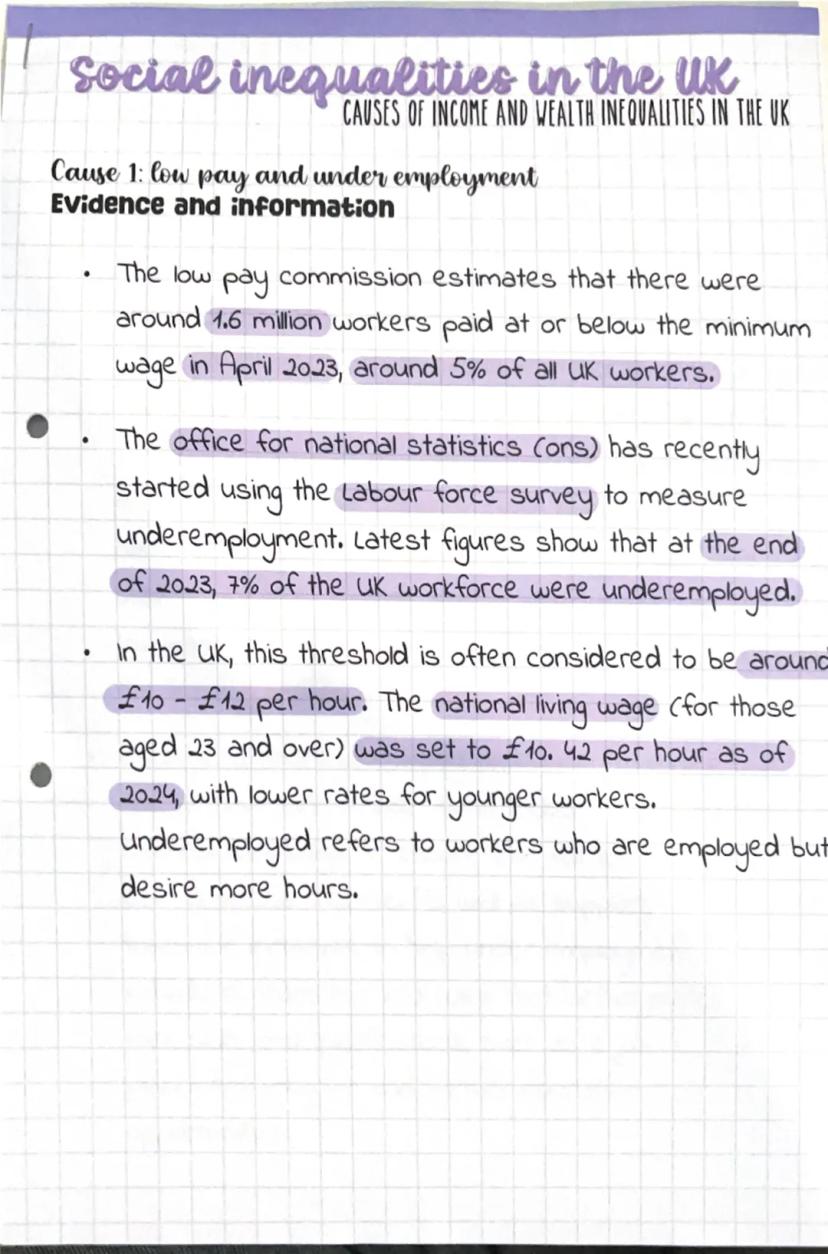 Social inequalities in the UK
CAUSES OF INCOME AND WEALTH INEQUALITIES IN THE UK
Cause 1: low pay and under employment
Evidence and information
• The low pay commission estimates that there were
around 1.6 million workers paid at or below the minimum
wage in April 2023, around 5% of all UK workers.
• The office for national statistics (ons) has recently
started using the Labour force survey to measure
underemployment. Latest figures show that at the end
of 2023, 7% of the UK workforce were underemployed.
• In the UK, this threshold is often considered to be around
£10 - £12 per hour. The national living wage (for those
aged 23 and over) was set to £10. 42 per hour as of
2024, with lower rates for younger workers.
Underemployed refers to workers who are employed but
desire more hours.